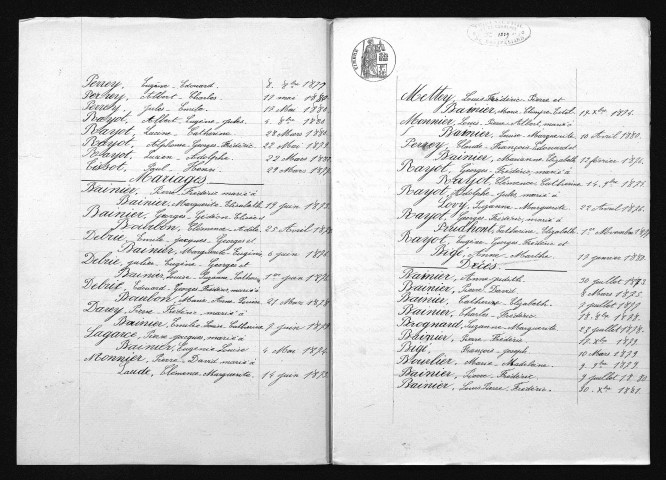 Perrey, Eugène Edouard. 8. 8bre 1879
Perrey, Albert Charles. 11 mai 1880.
Perrey, Jules Emile. 17 Mai 1880.
Rayot, Albert Eugène Jules 4. 8bre 1880
Rayot, Laure Catherine 28 Mars 1880.
Rayot, Alphonse Georges Frédéric. 22 Mai 1879
Rayot, Lucien Adolphe. 22 Mars 1880
Tissot, Paul Henri. 29 Mars 187
Mariages
Bainier, Pierre Frédéric marié à
Bainier, Marguerite Elisabeth 19 juin 1873.
Bainier, Georges Gédéon Elisée et
Bourlon, Clémence Adèle. 25 Avril 18
Debrie, Emile Jacques Georges et
Bainier, Marguerite Eugénie 6 juin 1876
Debrie, Julien Eugène Georges et
Bainier, Louise Suzanne Catherine 1er juin 1876
Debrit, Edouard Georges Frédéric, marié à
Bourbon, Marie Anne Louise 21 Mars 1878
Darey, Pierre Frédéric marié à
Bainier Emélie Louise Catherine 7 juin 18
Lagarce, Pierre Jacques, marié à
Bainier, Eugénie Louise 4 Mai 1874.
Monnier, Pierre David marié à
Laude, Clémence Marguerite. 14 juin 1873.
TIMBRE
1879
Mettey, Louis Frédéric Pierre et
Bainier, Marie Olimpe Estel. 19. Xbre 1874.
Monnier, Louis Pierre Albert, marié à
Bainier, Louise Marguerite 10 Avril 1880.
Perrey, Claude François Edouard et
Bainier, Marianne Elizabeth 17 février 1876.
Rayot, Georges Frédéric, marié à
Rayot, Clémence Catherine 14. 9bre 1876.
Rayot, Adolphe Jules, marié à
Lovy, Suzanne Marguerite 22 Avril 1876.
Rayot, Georges Frédéric, marié à
Pruthont, Catherine Elizabeth 1er Novembre 187
Rayot, Eugène Georges Frédéric et
Bigé, Anne Marthe 17 janvier 1880
Décès.
Bainier, Anne Judith. 30 juillet 1873
Bainier, Pierre David 8 Mars 1875.
Bainier, Catherine Elizabeth. 7 juillet 1877
Bainier, Charles Frédéric 18. 8bre 1878.
Berognard, Suzanne Marguerite. 28 juillet 1878.
Bainier, Pierre Frédéric 17. Xbre 1879.
Bigé, François Joseph. 10 Mars 1879
Bourlier, Marie Madeleine. 9. 9bre 1879.
Bainier, Pierre Frédéric. 7 juillet 18 80.
Bainier, Louis Pierre Frédéric. 30. Xbre 1881.